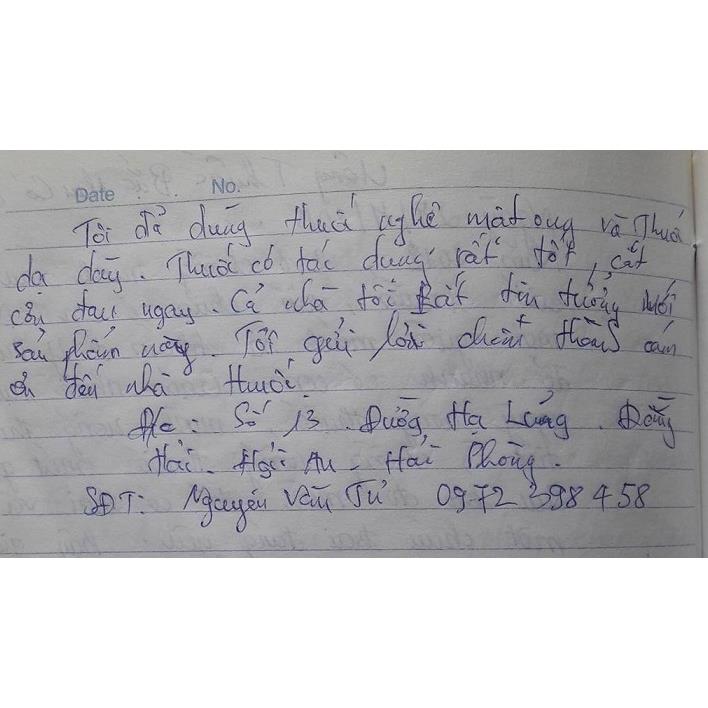 Date . . No.
Tôi đã dùng thuốc nghệ mật ong và Thuốc
dạ dày. Thuốc có tác dụng rất tốt, cắt
cơn đau ngay. Cả nhà tôi Rất tin tưởng với
sản phẩm này. Tôi gửi lời chân thành cảm
ơn đến nhà thuốc
Đ/c: Số 13. Đường Hạ Lũng. Đằng
Hải - Hải An - Hải Phòng.
SĐT: Nguyễn Văn Tư 0972 398 458